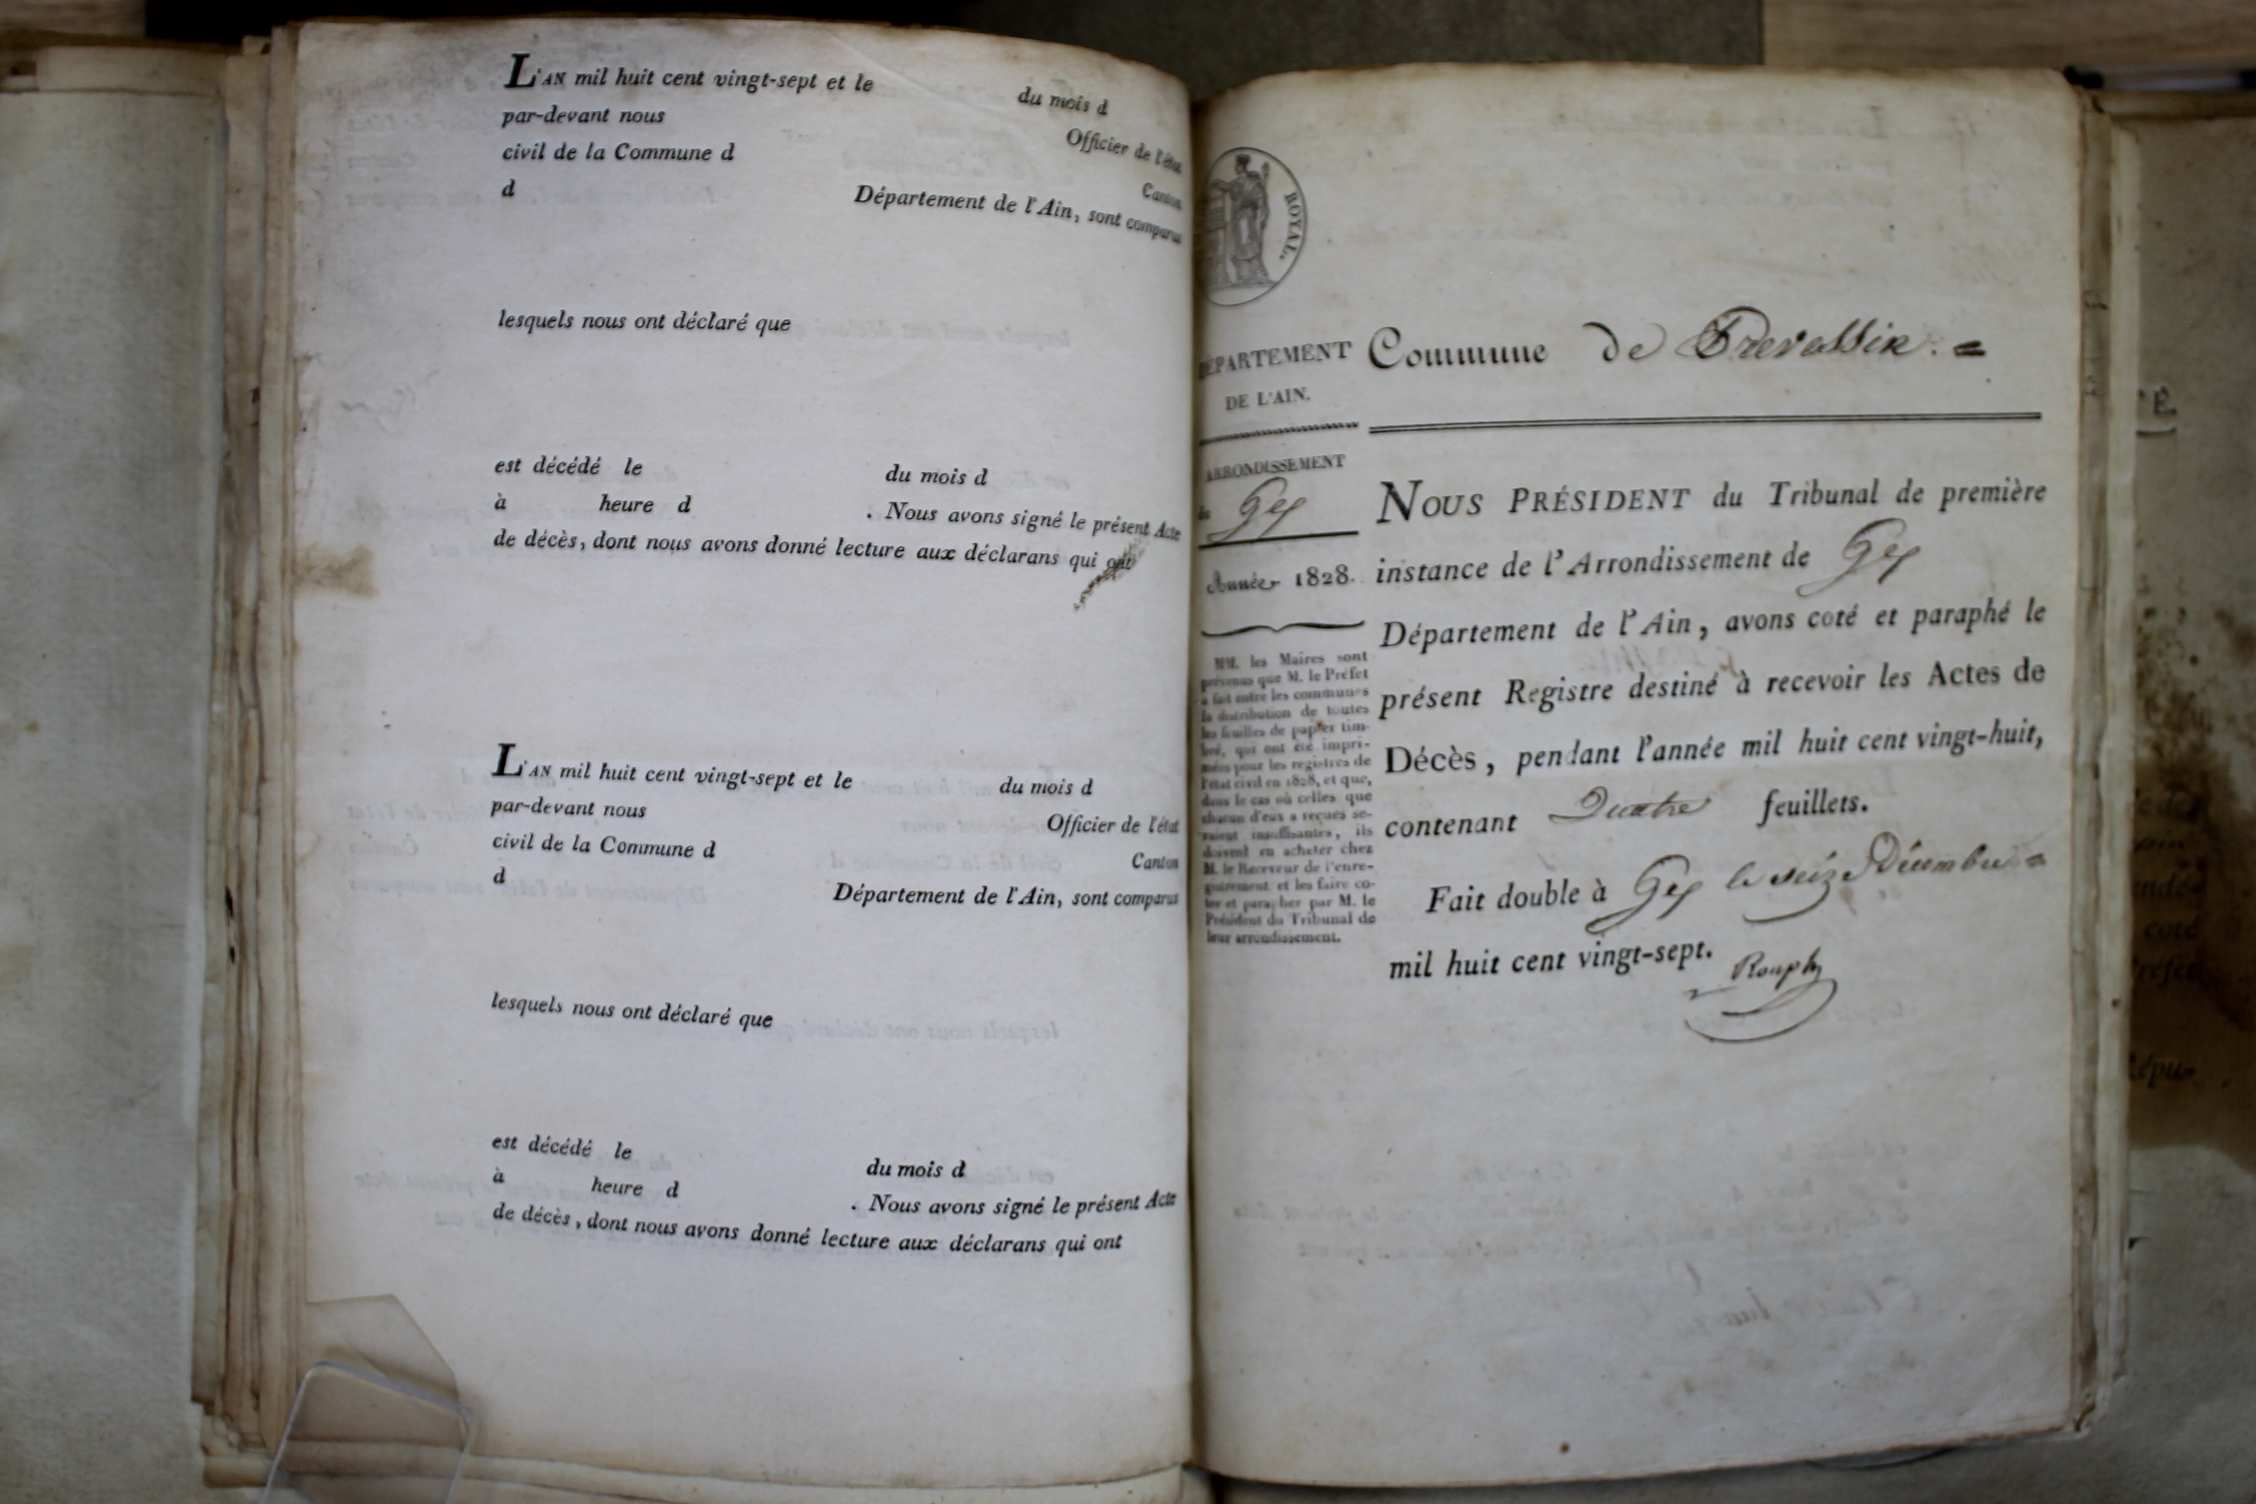 L'AN mil huit cent vingt-sept et le du mois d
par-devant nous Officier de l'état
civil de la Commune d Canton
d Département de l'Ain, sont comparus
lesquels nous ont déclaré que
est décédé le du mois d
à heure d . Nous avons signé le présent Acte
de décès, dont nous avons donné lecture aux déclarans qui ont
L'AN mil huit cent vingt-sept et le du mois d
par-devant nous Officier de l'état
civil de la Commune d Canton
d Département de l'Ain, sont comparus
lesquels nous ont déclaré que
est décédé le du mois d
à heure d . Nous avons signé le présent Acte
de décès, dont nous avons donné lecture aux déclarans qui ont
ROYAL.
DÉPARTEMENT
DE L'AIN.
ARRONDISSEMENT
de Gex
Année 1828.
MM. les Maires sont
prévenus que M. le Préfet
a fait entre les communes
la distribution de toutes
les feuilles de papier tim-
bré, qui ont été impri-
mées pour les registres de
l'état civil en 1828, et que,
dans le cas où celles que
chacun d'eux a reçues se-
raient insuffisantes, ils
doivent en acheter chez
M. le Receveur de l'enre-
gistrement et les faire co-
ter et parapher par M. le
Président du Tribunal de
leur arrondissement.
Commune de Prevessin. =
NOUS PRÉSIDENT du Tribunal de première
instance de l'Arrondissement de Gex
Département de l'Ain, avons coté et paraphé le
présent Registre destiné à recevoir les Actes de
Décès, pendant l'année mil huit cent vingt-huit,
contenant Quatre feuillets.
Fait double à Gex le seize Décembre =
mil huit cent vingt-sept.